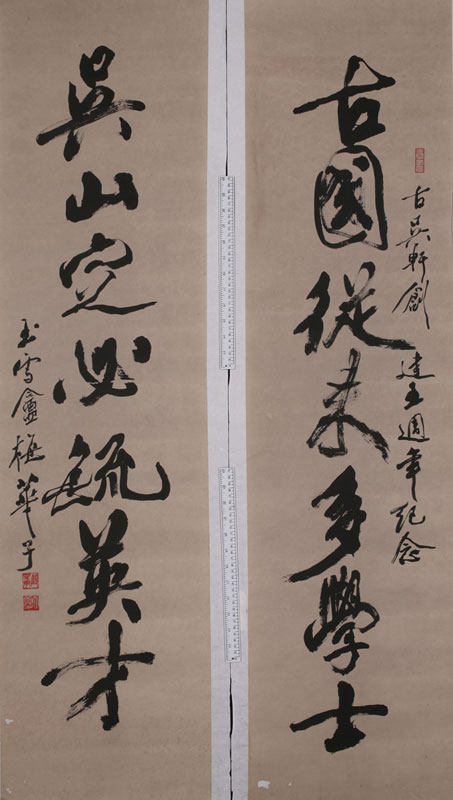 古吳軒創建五週年紀念
古國從来多學士
吳山定必毓英才
玉雪盦梅華子